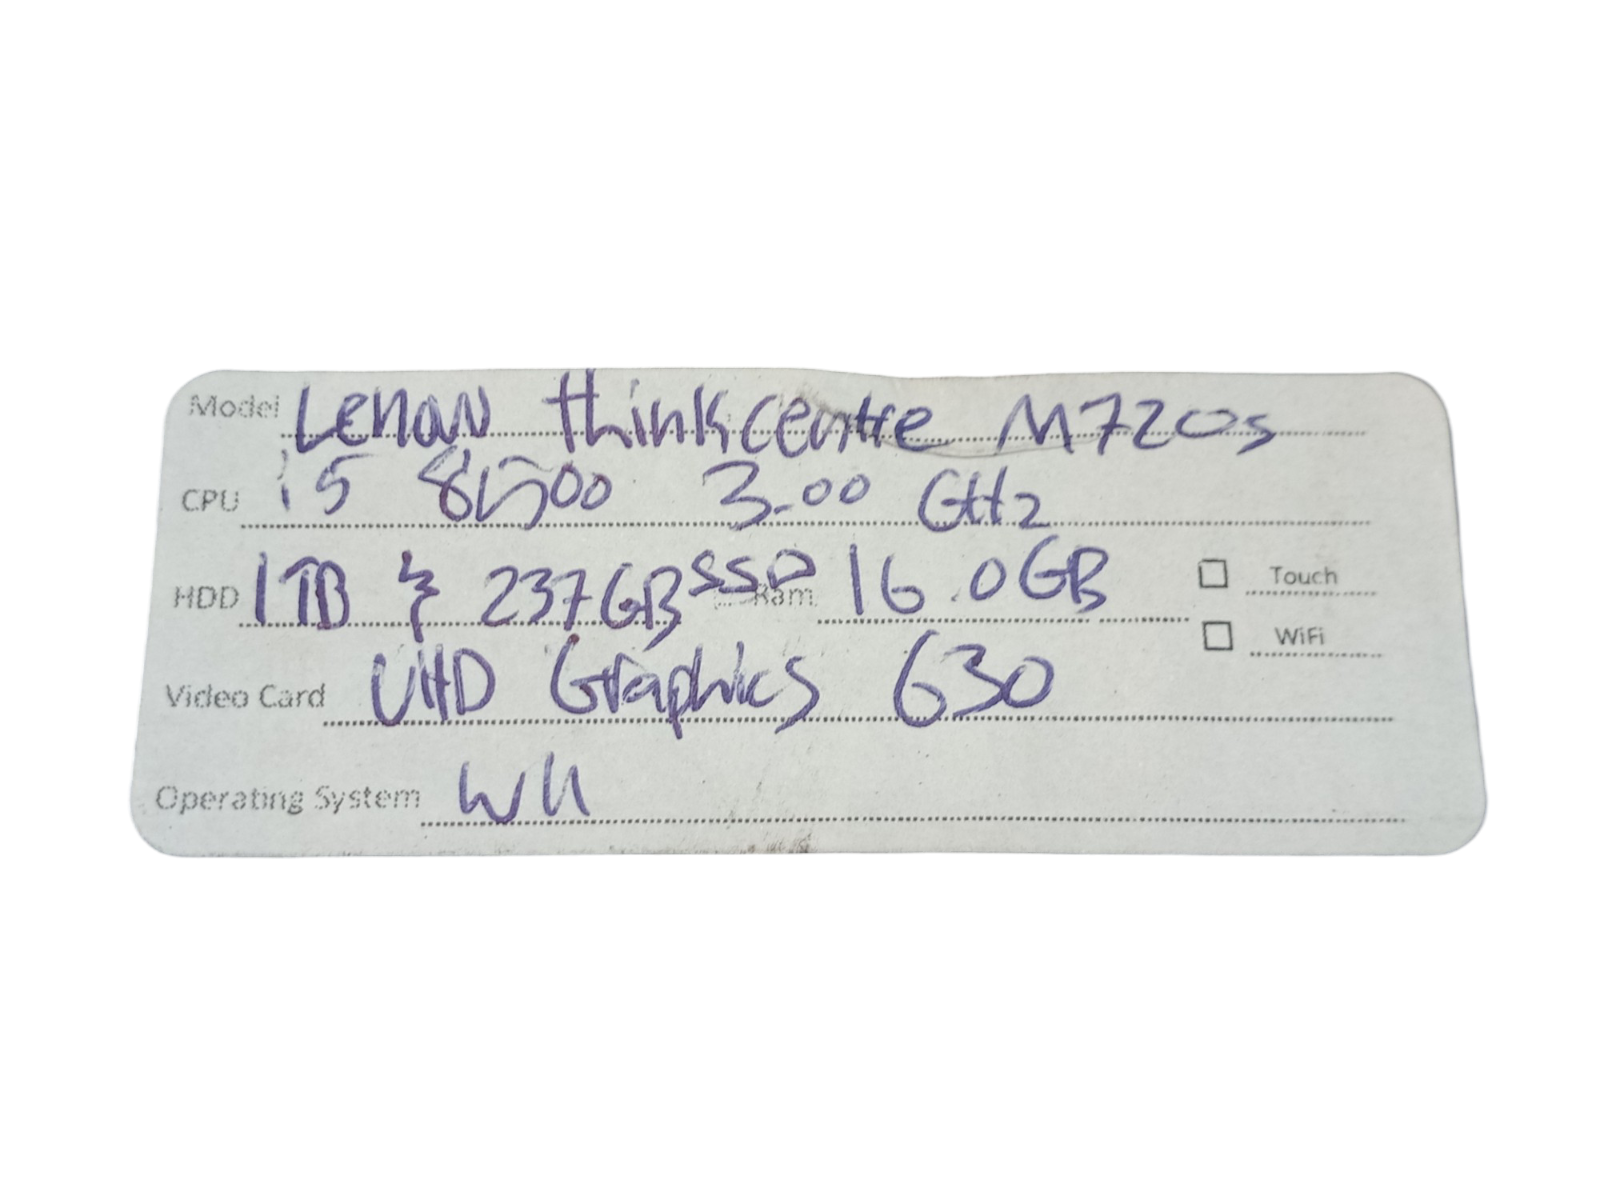 Model Lenovo thinkcentre M720s
CPU i5 8500 3.00 GHz
HDD 1TB & 237GB SSD Ram 16.0GB Touch
WiFi
Video Card UHD Graphics 630
Operating System W11